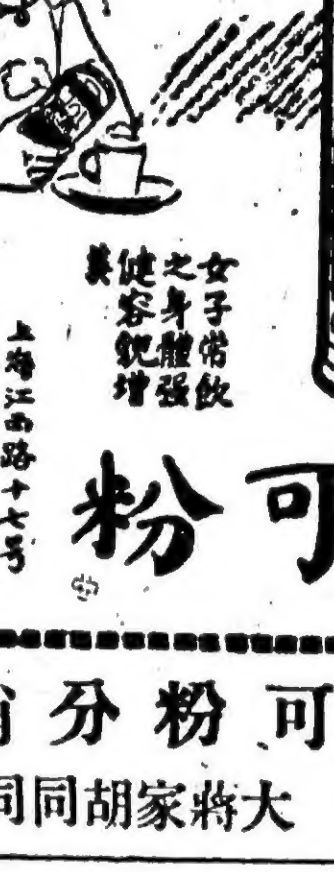 女子常飲
之身體强
健容貌增
美
上海江西路十七号
可粉
可粉分
大蔣家胡同